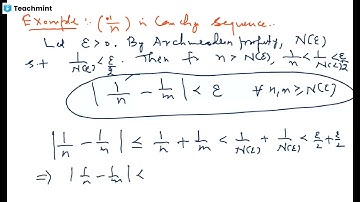 Teachmint
Example :- (1/n) is Cauchy sequence..
Let ε>0. By Archimedean property, N(ε)
s.t 1/N(ε) < ε/2. Then for n > N(ε), 1/n < 1/N(ε) < ε/2
| 1/n - 1/m | < ε ∀ n,m ≥ N(ε)
| 1/n - 1/m | ≤ 1/n + 1/m < 1/N(ε) + 1/N(ε) < ε/2 + ε/2
⇒ | 1/n - 1/m | <